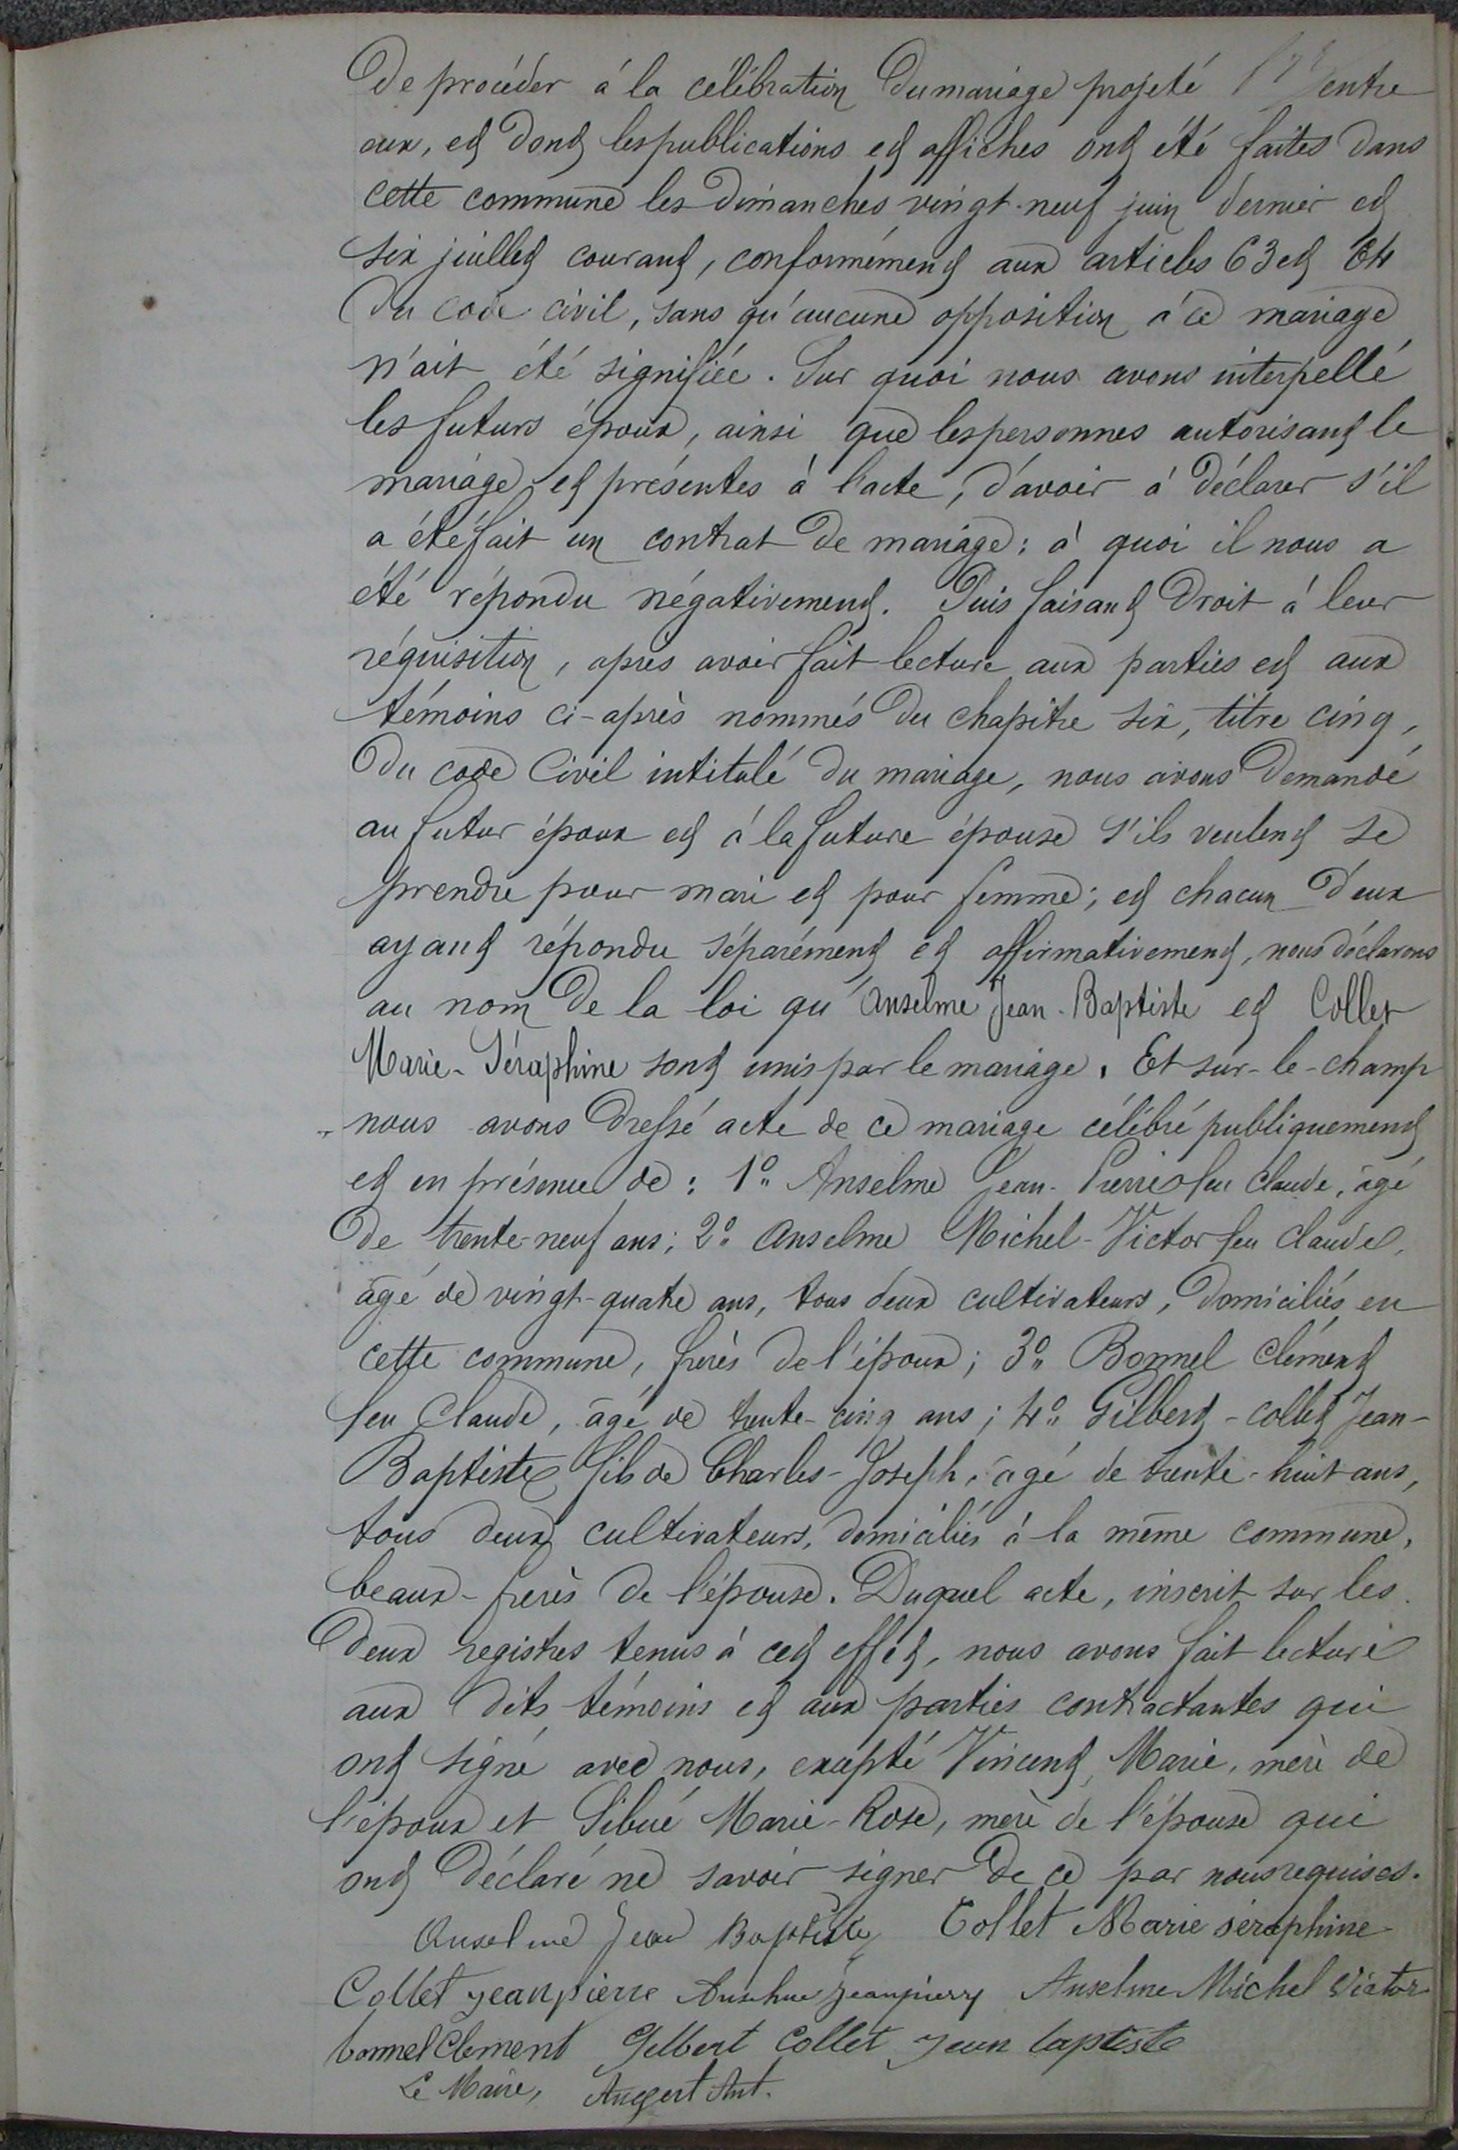 De procéder à la célébration du mariage projeté entre
eux, et dont les publications et affiches ont été faites dans
cette commune les Dimanches vingt-neuf juin dernier et
six juillet courant, conformément aux articles 63 et 64
Du code civil, sans qu'aucune opposition à ce mariage
n'ait été signifiée. Sur quoi nous avons interpellé
les futurs époux, ainsi que les personnes autorisant le
mariage et présentes à l'acte, d'avoir à déclarer s'il
a été fait un contrat de mariage : à quoi il nous a
été répondu négativement. Puis faisant droit à leur
réquisition, après avoir fait lecture aux parties et aux
témoins ci-après nommés du chapitre six, titre cinq,
Du code Civil intitulé du mariage, nous avons demandé
au futur époux et à la future épouse s'ils veulent se
prendre pour mari et pour femme ; et chacun d'eux
ayant répondu séparément et affirmativement, nous déclarons
au nom de la loi qu'Anselme Jean-Baptiste et Collet
Marie-Séraphine sont unis par le mariage. Et sur-le-champ
nous avons dressé acte de ce mariage célébré publiquement
et en présence de : 1° Anselme Jean-Pierre feu Claude, âgé
de trente-neuf ans ; 2° Anselme Michel-Victor feu Claude,
âgé de vingt-quatre ans, tous deux cultivateurs, domiciliés en
cette commune, frères de l'époux ; 3° Bonnel Clément
feu Claude, âgé de trente-cinq ans ; 4° Gilbert-Collet Jean-
Baptiste fils de Charles-Joseph, âgé de trente-huit ans,
tous deux cultivateurs, domiciliés à la même commune,
beaux-frères de l'épouse. Duquel acte, inscrit sur les
deux registres tenus à cet effet, nous avons fait lecture
aux dits témoins et aux parties contractantes qui
ont signé avec nous, excepté Vincent Marie, mère de
l'époux et Sibué Marie-Rose, mère de l'épouse qui
ont déclaré ne savoir signer de ce par nous requises.
Anselme Jean Baptiste Collet Marie séraphine
Collet jean pierre Anselme jeanpierre Anselme Michel Victor
bonnel Clement Gilbert Collet Jean baptiste
Le Maire, Augert Ant.